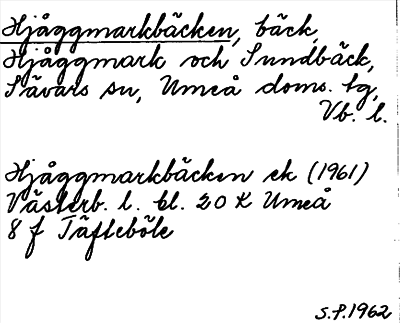 Hjåggmarkbäcken, bäck,
Hjåggmark och Sundbäck,
Sävars sn, Umeå doms. tg,
Vb. l.
Hjåggmarkbäcken ek (1961)
Västerb. l. bl. 20 K Umeå
8 f Täfteböle
S.P. 1962